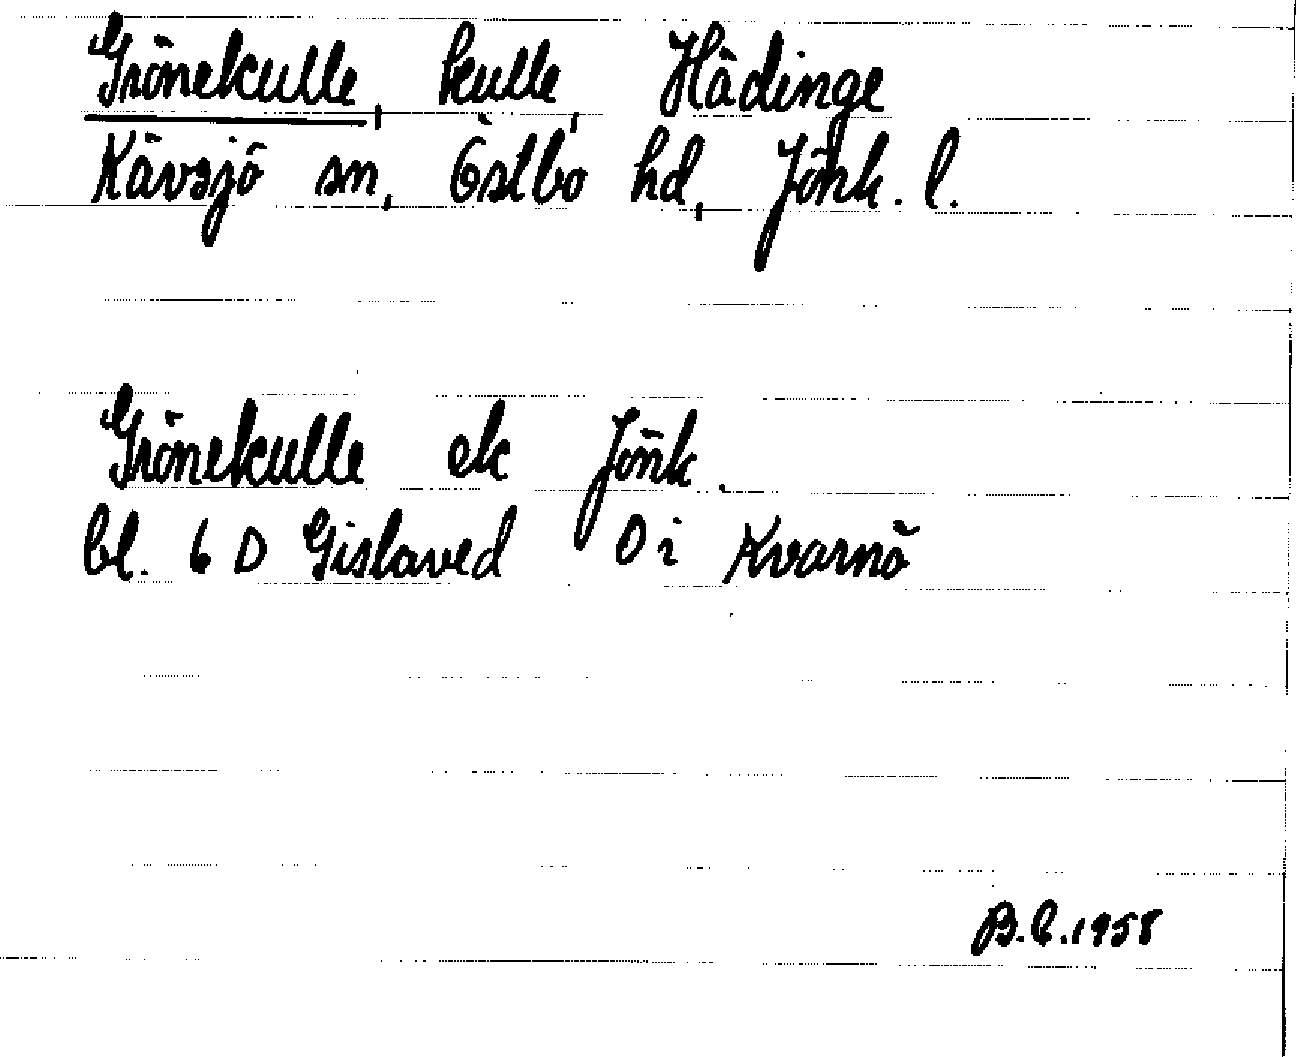 Grönekulle, kulle, Hädinge
Kävsjö sn, Östbo hd, Jönk. l.
Grönekulle ek Jönk.
bl. 6 D Gislaved 0 i Kvarnö
B.C.1958